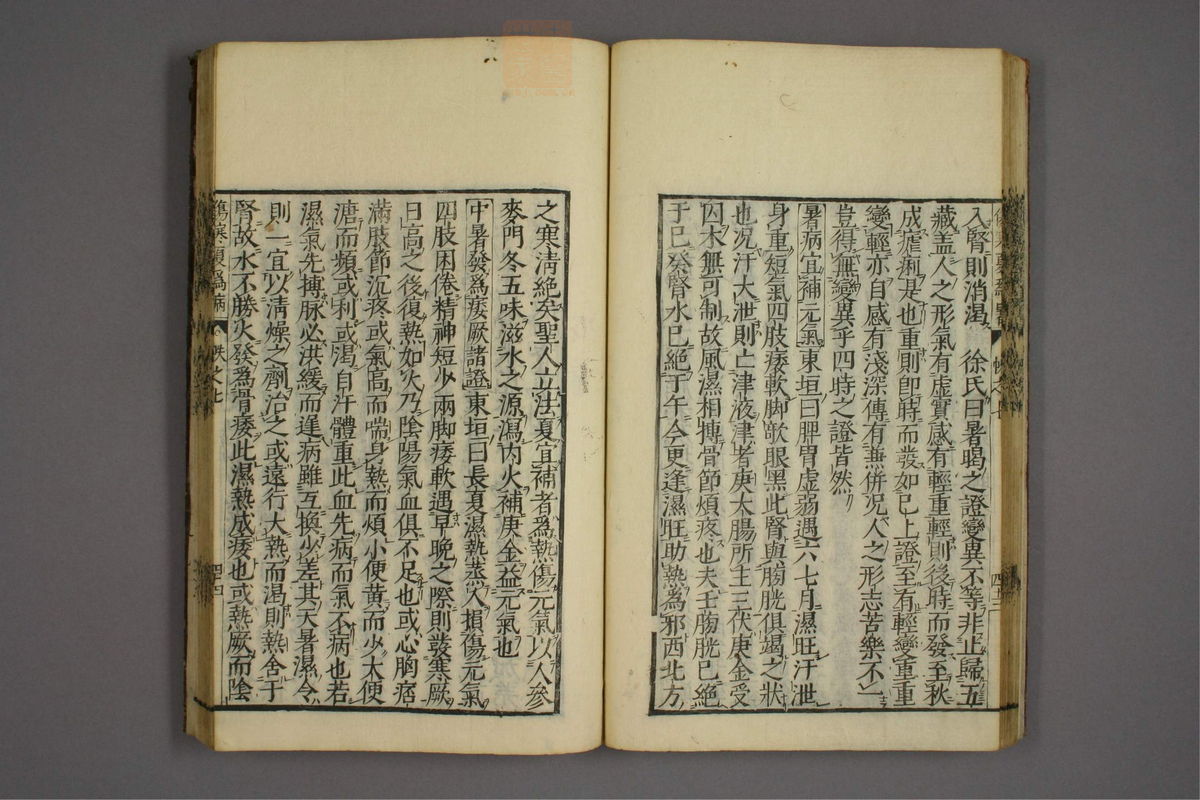 入腎則消渴　徐氏曰暑暍之證變異不等非止歸五
藏盖人之形氣有虛實感有輕重輕則後時而發至秋
成瘧痢是也重則卽時而發如已上證至有輕變重重
變輕亦自感有淺深傳有兼併况人之形志苦樂不一
豈得無變異乎四時之證皆然
暑病宜補元氣東垣曰脾胃虛弱遇六七月濕旺汗泄
身重短氣四肢痿軟脚欹眼黑此腎與膀胱俱竭之狀
也况汗大泄則亡津液津者庚大腸所主三伏庚金受
囚木無可制故風濕相搏骨節煩疼也夫壬膀胱已絕
于巳癸腎水已絕于午今更逢濕旺助熱為邪西北方
之寒淸絕矣聖人立法夏宜補者爲熱傷元氣以人參
麥門冬五味滋水之源瀉丙火補庚金益元氣也
中暑發爲痿厥諸證東垣曰長夏濕熱蒸人損傷元氣
四肢困倦精神短少兩脚痿軟遇早晚之際則發寒厥
日高之後復熱如火乃陰陽氣血俱不足也或心胸痞
滿肢節沉疼或氣高而喘身熱而煩小便黃而少大便
溏而頻或利或渴自汗體重此血先病而氣不病也若
濕氣先搏脉必洪緩而遲病雖互換少差其天暑濕令
則一宜以淸燥之劑治之或遠行大熱而渴則熱舍于
腎故水不勝火發爲骨痿此濕熱成痿也或熱厥而陰
傷寒類爲病　帙之七　四十四